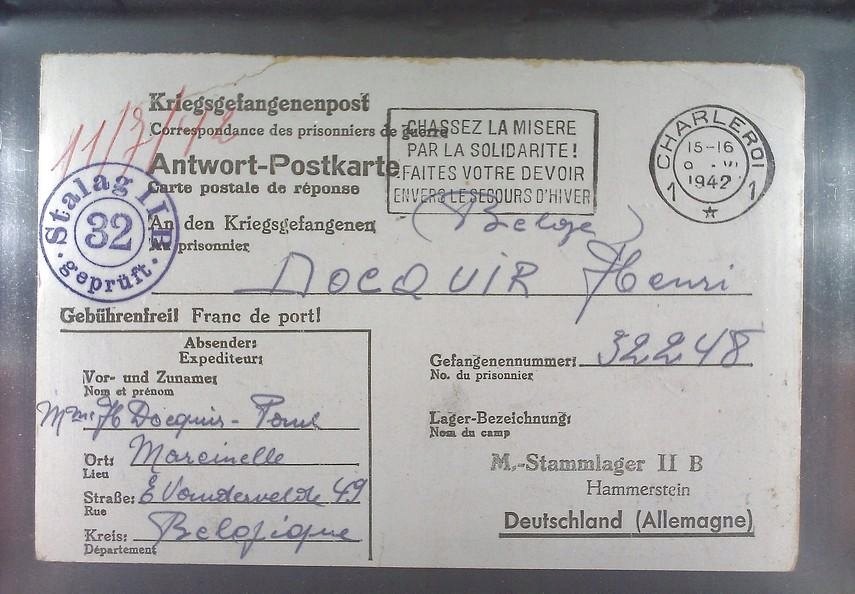 Kriegsgefangenenpost
Correspondance des prisonniers de guerre
11/7/42
Antwort-Postkarte
Carte postale de réponse
CHASSEZ LA MISERE
PAR LA SOLIDARITE!
FAITES VOTRE DEVOIR
ENVERS LE SECOURS D'HIVER
CHARLEROI
15-16
VI
1942
1 1
Stalag II B
32
geprüft
An den Kriegsgefangenen
Au prisonnier
(Belge)
DOCQUIR Henri
Gebührenfrei! Franc de port!
Absender:
Expediteur:
Vor- und Zuname:
Nom et prénom
Mme H Docquir-
Ort: Marcinelle
Lieu
Straße: E Vandervelde 49
Rue
Kreis: Belgique
Département
Gefangenennummer: 32248
No. du prisonnier
Lager-Bezeichnung:
Nom du camp
M.-Stammlager II B
Hammerstein
Deutschland (Allemagne)